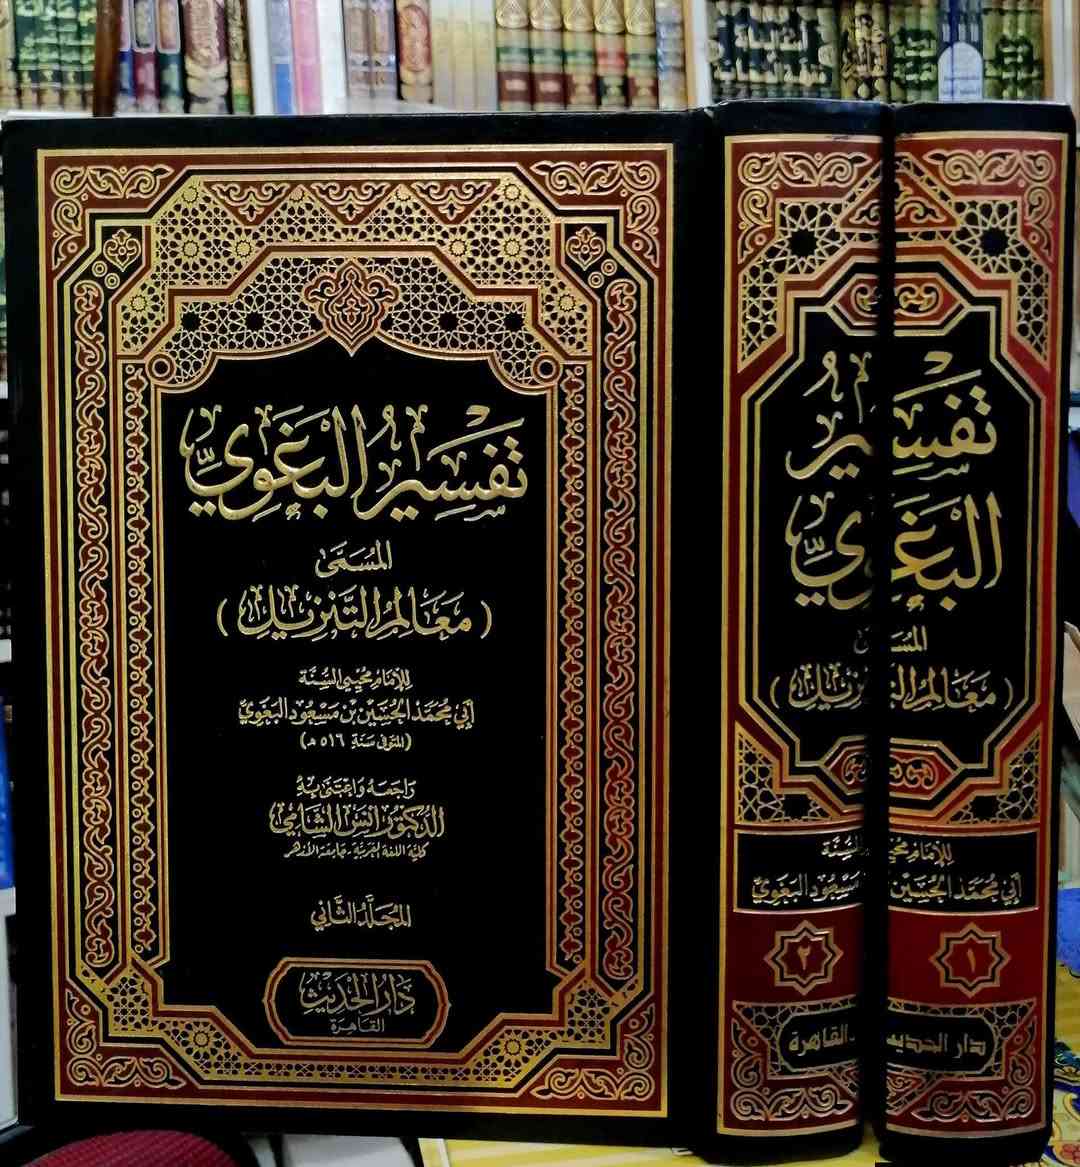 تفسير البغوي
المسمى
(معالم التنزيل)
للإمام محيي السنة
أبي محمد الحسين بن مسعود البغوي
(المتوفى سنة ٥١٦ هـ)
راجعه واعتنى به
الدكتور أنس الشامي
كلية اللغة العربية - جامعة الأزهر
المجلد الثاني
دار الحديث
القاهرة
تفسير
البغوي
المسمى
(معالم التنزيل)
للإمام محيي السنة
أبي محمد الحسين مسعود البغوي
٢
١
دار الحديث - القاهرة